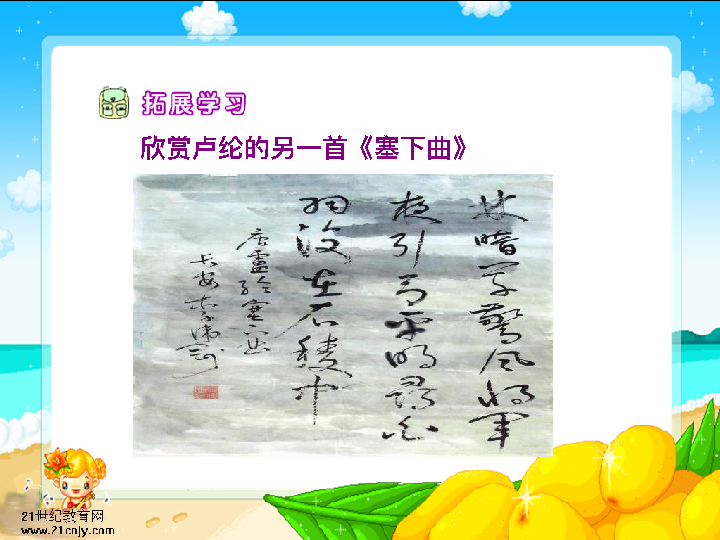 拓展学习
欣赏卢纶的另一首《塞下曲》
林暗草驚風将軍
夜引弓平明尋白
羽没在石稜中
唐盧綸塞下曲
長安
21世纪教育网
www.21cnjy.com